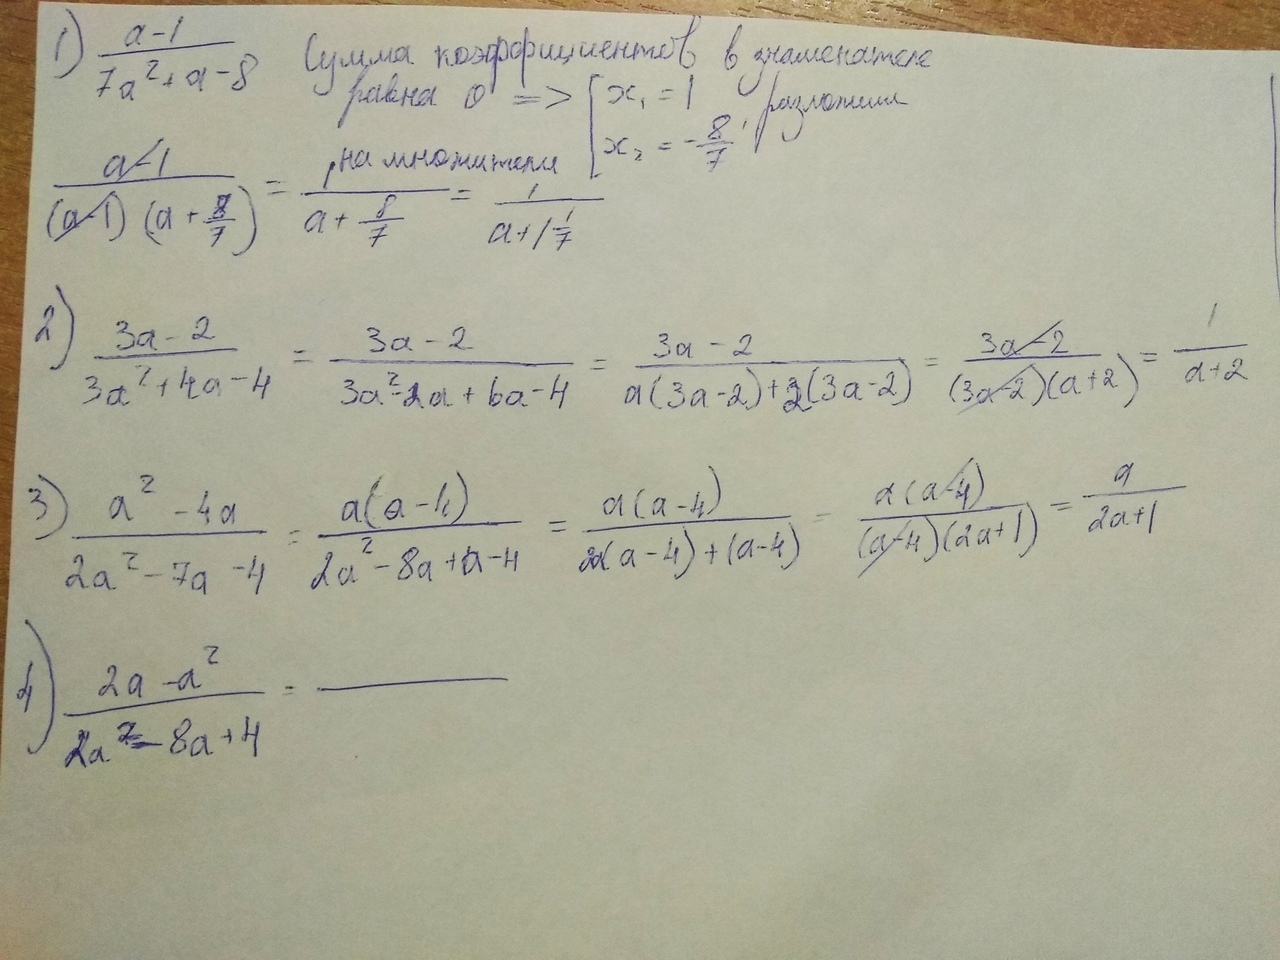 1) (a-1)/(7a²+a-8) Сумма коэффициентов в знаменателе
равна 0 => [ x₁ = 1
x₂ = -8/7, разложим
на множители
(a-1)/((a-1)(a+8/7)) = 1/(a+8/7) = 1/(a+1 1/7)
2) (3a-2)/(3a²+4a-4) = (3a-2)/(3a²-2a+6a-4) = (3a-2)/(a(3a-2)+2(3a-2)) = (3a-2)/((3a-2)(a+2)) = 1/(a+2)
3) (a²-4a)/(2a²-7a-4) = a(a-4)/(2a²-8a+a-4) = a(a-4)/(2a(a-4)+(a-4)) = a(a-4)/((a-4)(2a+1)) = a/(2a+1)
4) (2a-a²)/(2a²-8a+4) =